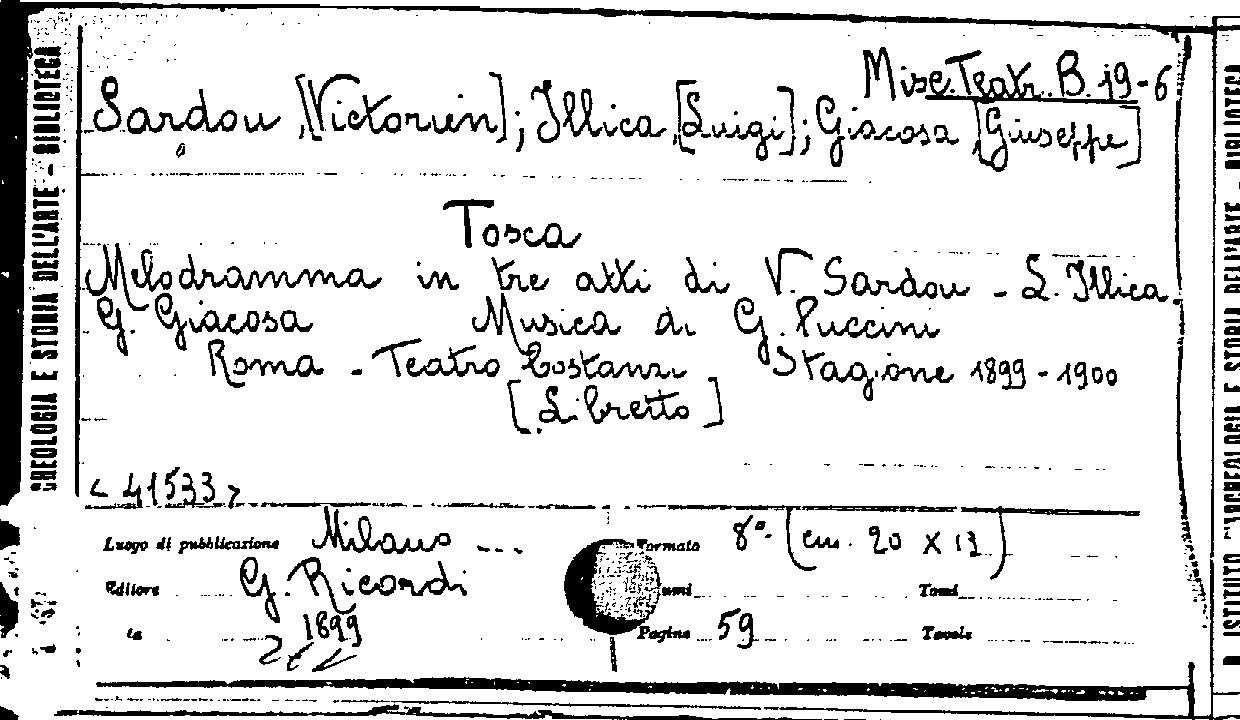 Misc. Teatr. B. 19-6
Sardou, [Victorien]; Illica, [Luigi]; Giacosa [Giuseppe]
Tosca
Melodramma in tre atti di V. Sardou - L. Illica.
G. Giacosa Musica di G. Puccini
Roma - Teatro Costanzi Stagione 1899-1900
[Libretto]
<41533>
Luogo di pubblicazione Milano Formato 8º. (cm. 20 x 13)
Editore G. Ricordi umi Tomi
1899 Pagine 59 Tavole
CHEOLOGIA E STORIA DELL'ARTE - BIBLIOTECA
ISTITUTO D'ARCHEOLOGIA E STORIA DELL'ARTE - BIBLIOTECA